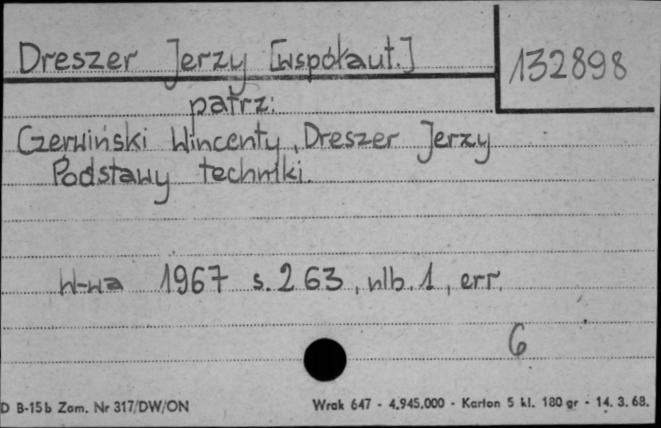 Dreszer Jerzy [współaut.]
132898
patrz:
Czerwiński Wincenty, Dreszer Jerzy
Podstawy techniki.
W-wa 1967 s. 263, nlb. 1, err.
6
D B-15b Zam. Nr 317/DW/ON
Wrak 647 - 4.945.000 - Karton 5 kl. 180 gr - 14. 3. 68.